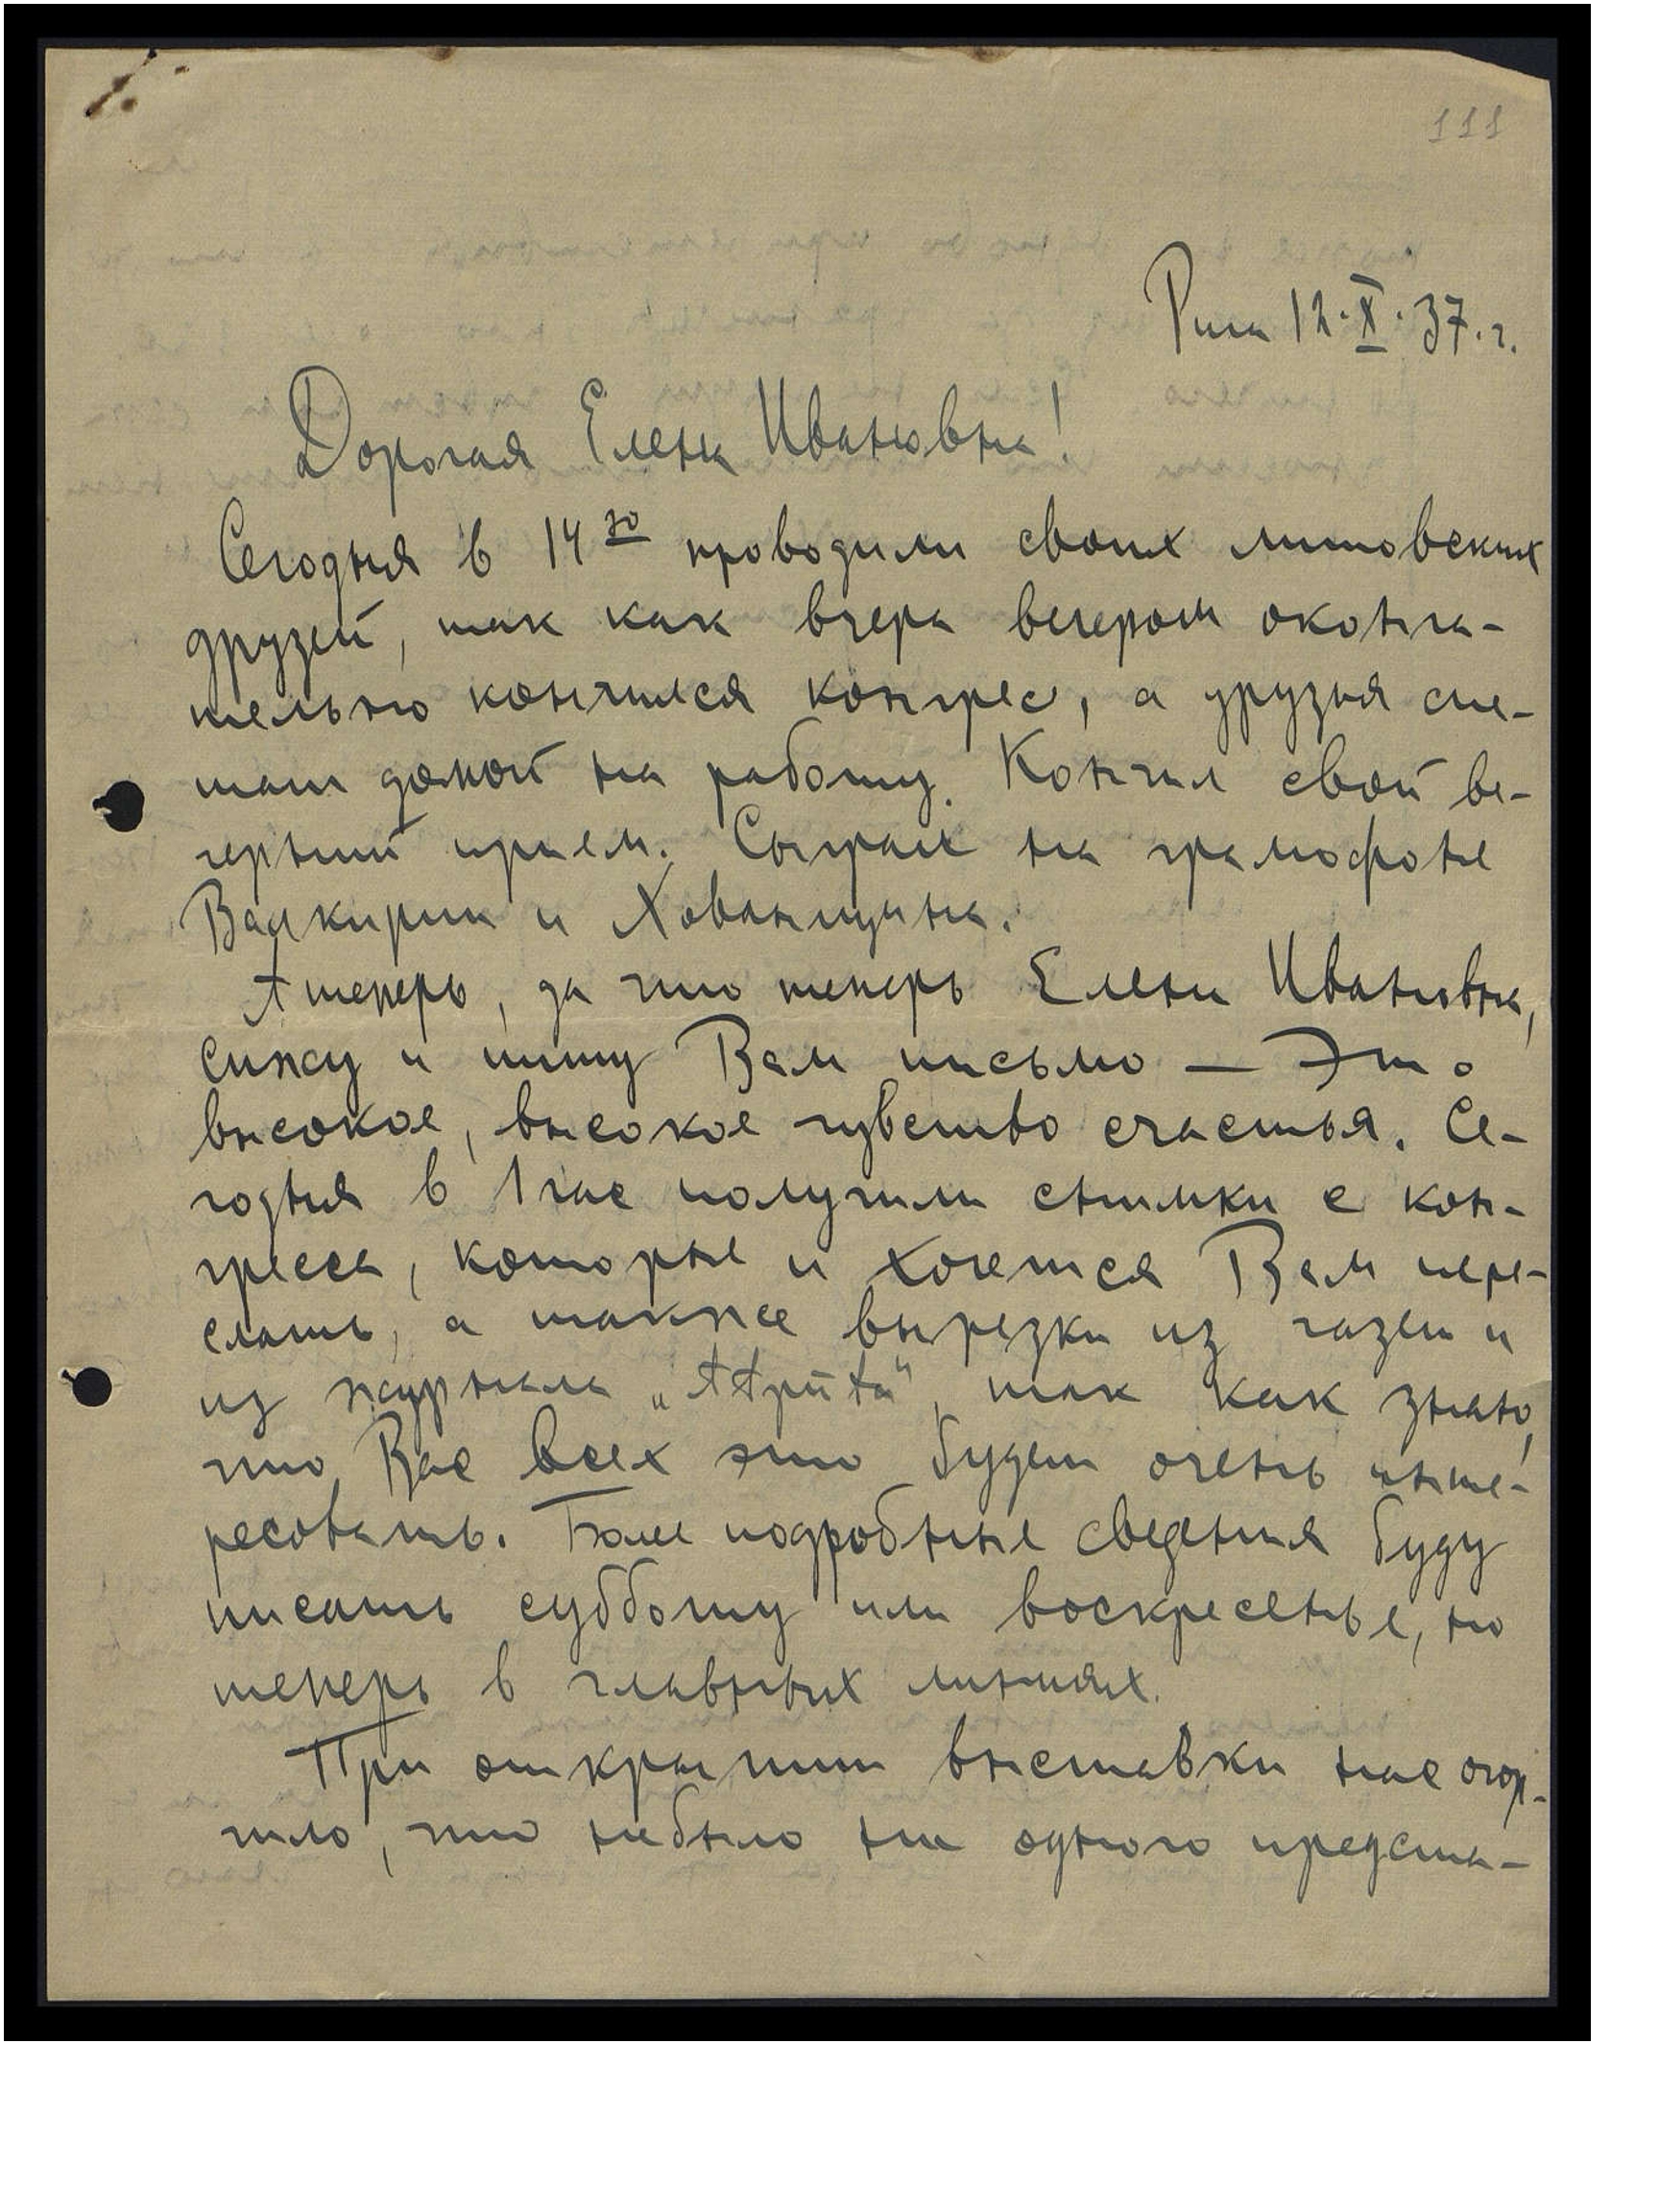 111
Рига 12.X.37.г.
Дорогая Елена Ивановна!
Сегодня в 14 30 проводили своих литовских
друзей, так как вчера вечером оконча-
тельно кончился конгрес, а друзья спе-
шат домой на работу. Кончил свой ве-
черний прием. Сыграл на грамофоне
Валкирии и Хованщина.
А теперь, да что теперь Елена Ивановна,
сижу и пишу Вам письмо — Это
высокое, высокое чувство счастья. Се-
годня в 1 час получили снимки с кон-
гресса, которые и хочется Вам пере-
слать, а также вырезки из газет и
из журнала „Atpūta", так как знаю,
что Вас всех это будет очень инте-
ресовать. Более подробные сведения буду
писать субботу или воскресенье, но
теперь в главных линиях.
При открытии выставки нас огор-
чило, что небыло ни одного предста-